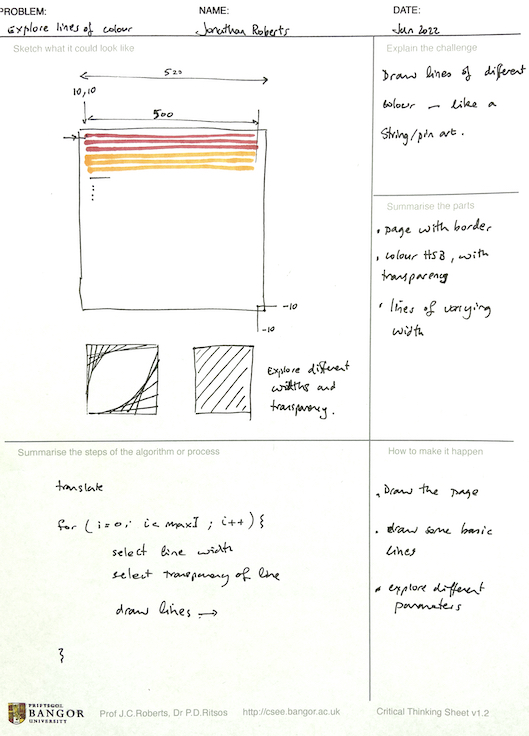 PROBLEM:
NAME:
DATE:
Explore lines of colour
Jonathan Roberts
Jan 2022
Sketch what it could look like
520
10,10
500
-10
-10
Explore different
widths and
transparency.
Explain the challenge
Draw lines of different
colour – like a
String/pin art.
Summarise the parts
• page with border
• colour HSB, with
transparency
• lines of varying
width
Summarise the steps of the algorithm or process
translate
for (i=0; i< maxI ; i++) {
select line width
select transparency of line
draw lines →
}
How to make it happen
• Draw the page
• draw some basic
lines
• explore different
parameters
PRIFYSGOL
BANGOR
UNIVERSITY
Prof J.C.Roberts, Dr P.D.Ritsos
http://csee.bangor.ac.uk
Critical Thinking Sheet v1.2